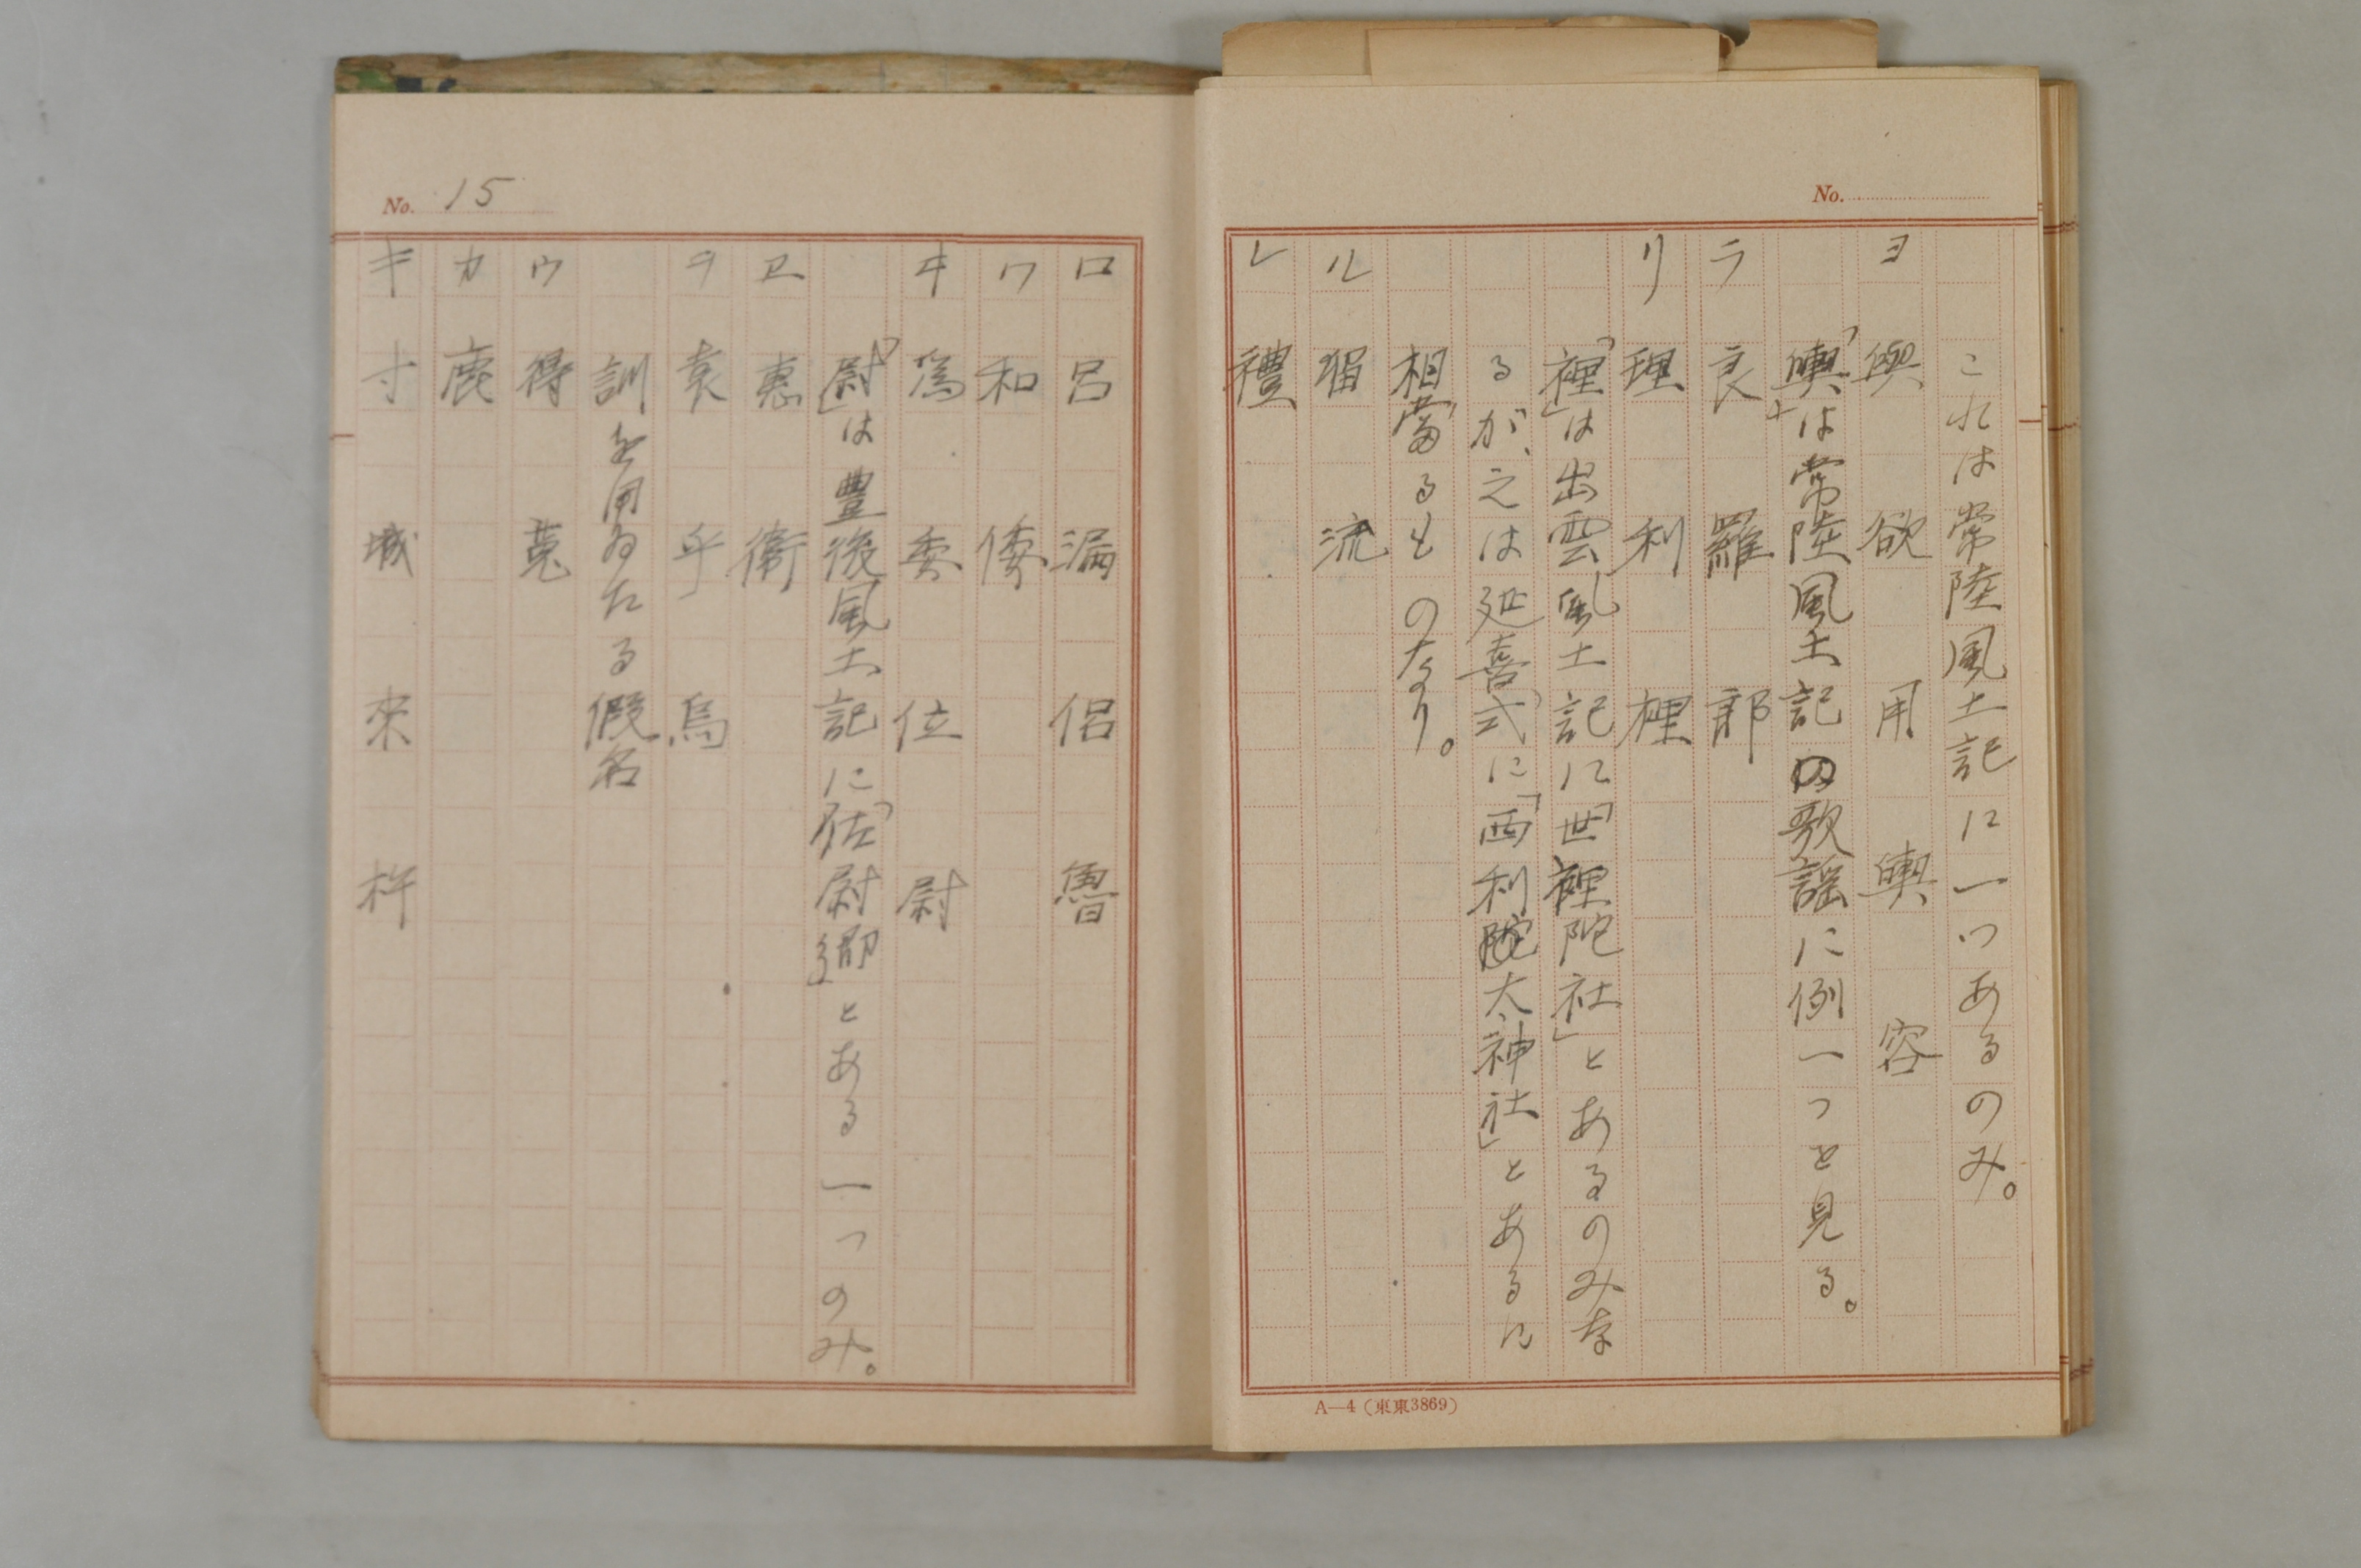 No.
これは常陸風土記に一つあるのみ。
ヨ 與 欲 用 輿 容
「輿」は常陸風土記の歌謡に例一つを見る。
ラ 良 羅 郎
リ 理 利 裡
「裡」は出雲風土記に「世裡陀社」とあるのみな
るが、之は延喜式に「西利陀太神社」とあるに
相當るものなり。
ル 留 流
レ 禮
A—4（東東3869）
No. 15
ロ 呂 漏 侶 魯
ワ 和 倭
ヰ 為 委 位 尉
「尉」は豊後風土記に「佐尉郷」とある一つのみ。
ヱ 惠 衞
ヲ 袁 乎 烏
訓を用ゐたる假名
ウ 得 菟
カ 鹿
キ 寸 城 來 杵